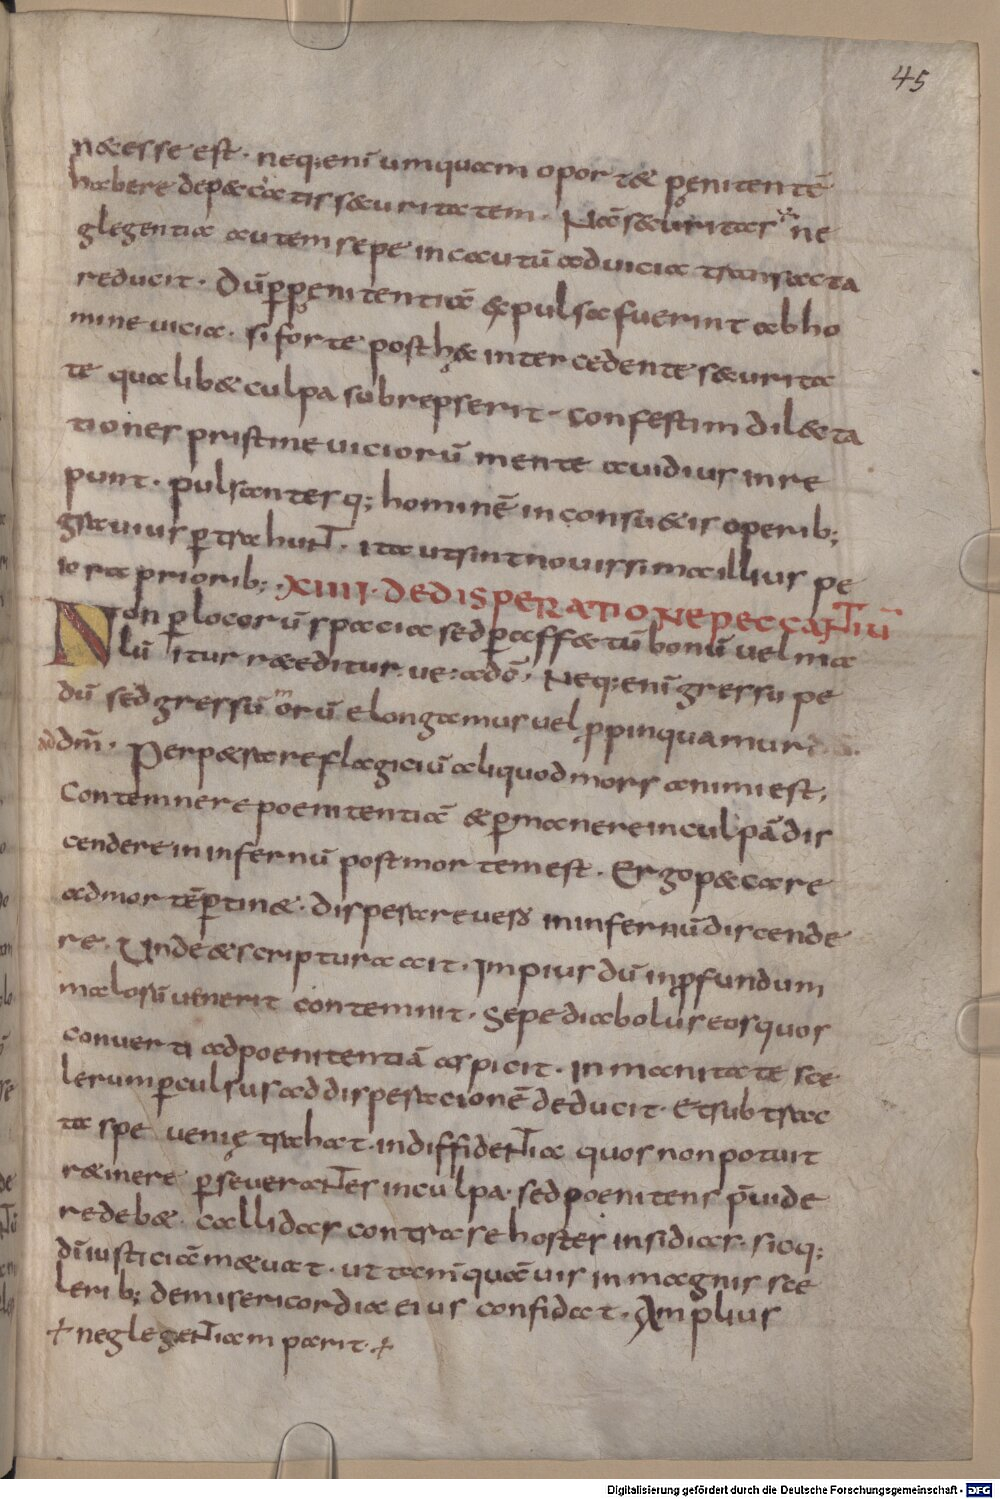 45
n&esse est. neq;eni umquam oport& penitentē
habere depeccatis securitatem. Nā securitas ne
glegentia autem sepe incautū aduicia transacta
reducit. Dū ꝑpenitentiā expulsa fuerint abho
mine uicia. si forte post hęc intercedente securita
te qualib& culpa subrepserit. confestim dilecta
tiones pristine uiciorū mente auidius inre
punt. pulsantesq; hominē inconsu&is operib;
grauius ꝑtrahunt. ita utsint nouissima illius pe
iora priorib; XIIII. DE DISPERATIONE PECCANTIŪ
Non ꝑ locorū spacia sed ꝑ affectū bonū uel ma
lū itur r&editur. ue: adō. Neq; enī gressu pe
dū sed gressū morū elongamus uel ꝓpinquamur
ad dm̄. Perp&rare flagiciū aliquod mors animi est;
Contemnere poenitentiā & ꝑmanere inculpā dis
cendere in infernū post mortem est. Ergo peccare
ad mortē ꝑtin&. disperare uero in infernū discende
re. Unde & scriptura ait. Impius dū inꝓfundum
malorū uenerit contemnit. Sepe diabolus eos quos
conuerti ad poenitentiā aspicit. inmanitate sce
lerum ꝑculsus ad disperacionē deducit. Et subtrac
ta spe uenię trahat. indiffidentia quos non potuit
r&inere ꝑseuerantes inculpa. sed poenitens p̄uide
re deb&. callidas contra se hostes insidias. sicq;
dī iusticiā m&uat. ut tam̄ quāuis in magnis sce
lerib; demisericordia eius confidat. Amplius
neglegentiam parit.
Digitalisierung gefördert durch die Deutsche Forschungsgemeinschaft - DFG